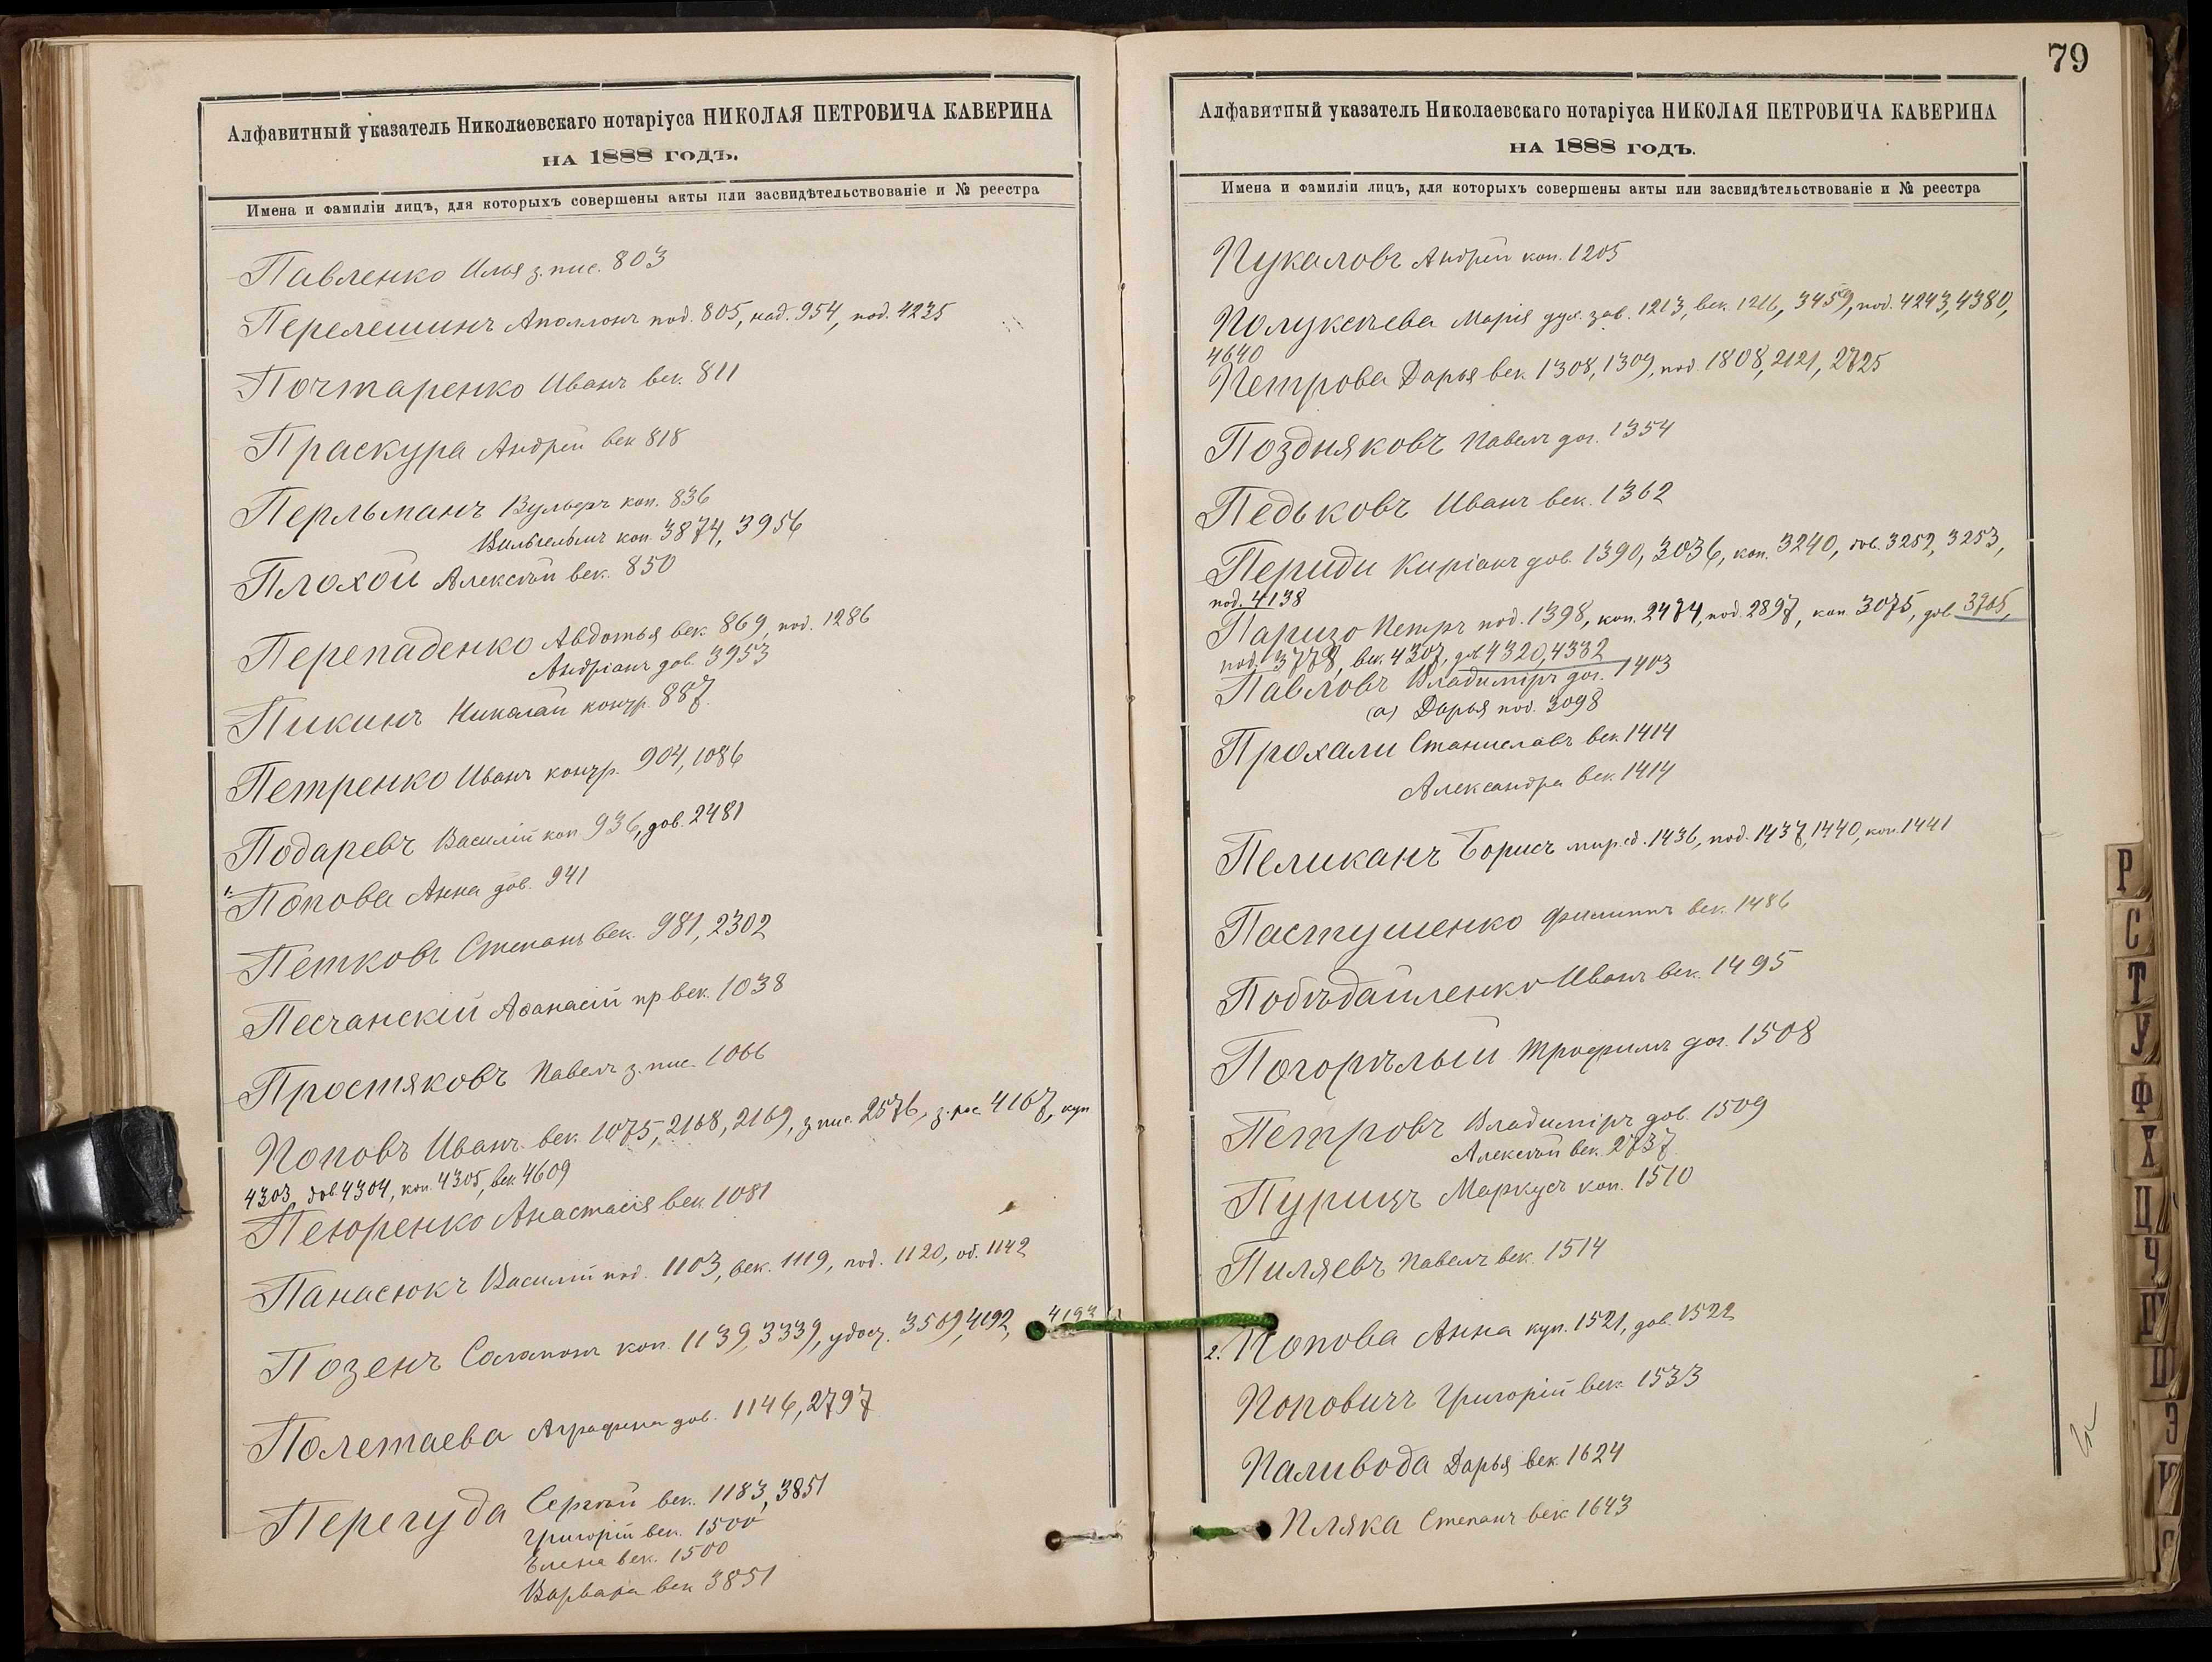 Алфавитный указатель Николаевскаго нотаріуса НИКОЛАЯ ПЕТРОВИЧА КАВЕРИНА
НА 1888 ГОДЪ.
Имена и фамиліи лицъ, для которыхъ совершены акты или засвидѣтельствованіе и № реестра
Павленко Илья з. пис. 803
Перелешинъ Аполлонъ под. 805, над. 954, под. 4235
Почтаренко Иванъ век. 811
Праскура Андрей век 818
Перльманъ Вульфъ коп. 836
Вильгельмъ коп. 3874, 3956
Плохой Алексѣй век. 850
Перепаденко Авдотья век 869, под. 1286
Андріанъ дов. 3953
Пикинъ Николай контр. 887
Петренко Иванъ контр. 904, 1086
Подаревъ Василій коп 936, дов. 2481
1. Попова Анна дов. 941
Петковъ Степанъ век. 981, 2302
Песчанскій Аѳанасій пр век. 1038
Простяковъ Павелъ з. пис. 1066
Поповъ Иванъ век. 1075, 2168, 2169, з пис. 2576, з. рос 4167, куп
4303, дов. 4304, коп. 4305, век 4609
Пеюренко Анастасія век 1081
Панасюкъ Василій под. 1103, век. 1119, под. 1120, об. 1142
Позенъ Соломонъ коп. 1139, 3339, удост. 3569, 4192, 4193
Полетаева Аграфена дов. 1146, 2797
Перегуда Сергѣй век. 1183, 3851
Григорій век. 1500
Елена век. 1500
Варвара век 3851
79
Алфавитный указатель Николаевскаго нотаріуса НИКОЛАЯ ПЕТРОВИЧА КАВЕРИНА
НА 1888 ГОДЪ.
Имена и фамиліи лицъ, для которыхъ совершены акты или засвидѣтельствованіе и № реестра
Пукаловъ Андрей коп. 1205
Полукеева Марія дух. зав. 1213, век. 1216, 3459, под. 4243, 4380,
4640
Петрова Дарья век 1308, 1309, под. 1808, 2121, 2725
Поздняковъ Павелъ дог. 1354
Педьковъ Иванъ век. 1362
Периди Киріанъ дов. 1390, 3036, коп. 3240, дов. 3252, 3253,
под. 4138
Паризо Петръ под. 1398, коп. 2474, под. 2897, коп 3075, дов 3705,
под. 3778, век. 4307, дов 4320, 4332
Павловъ Владиміръ дог. 1403
(а) Дарья под. 3098
Прохали Станиславъ век 1414
Александра век. 1414
Пеликанъ Борисъ мир. сд. 1436, под. 1437, 1440, коп. 1441
Пастушенко Филиппъ век. 1486
Побѣдайленко Иванъ век. 1495
Погорѣлый Трофимъ дог. 1508
Петровъ Владиміръ дов. 1509
Алексѣй век. 2737
Пурицъ Маркусъ коп. 1510
Пиляевъ Павелъ век. 1514
2. Попова Анна куп. 1521, дов. 1522
Поповичъ Григорій век 1533
Паливода Дарья век. 1624
Пляка Степанъ век 1643
Р
С
Т
У
Ф
Х
Ц
Ч
Ш
Э